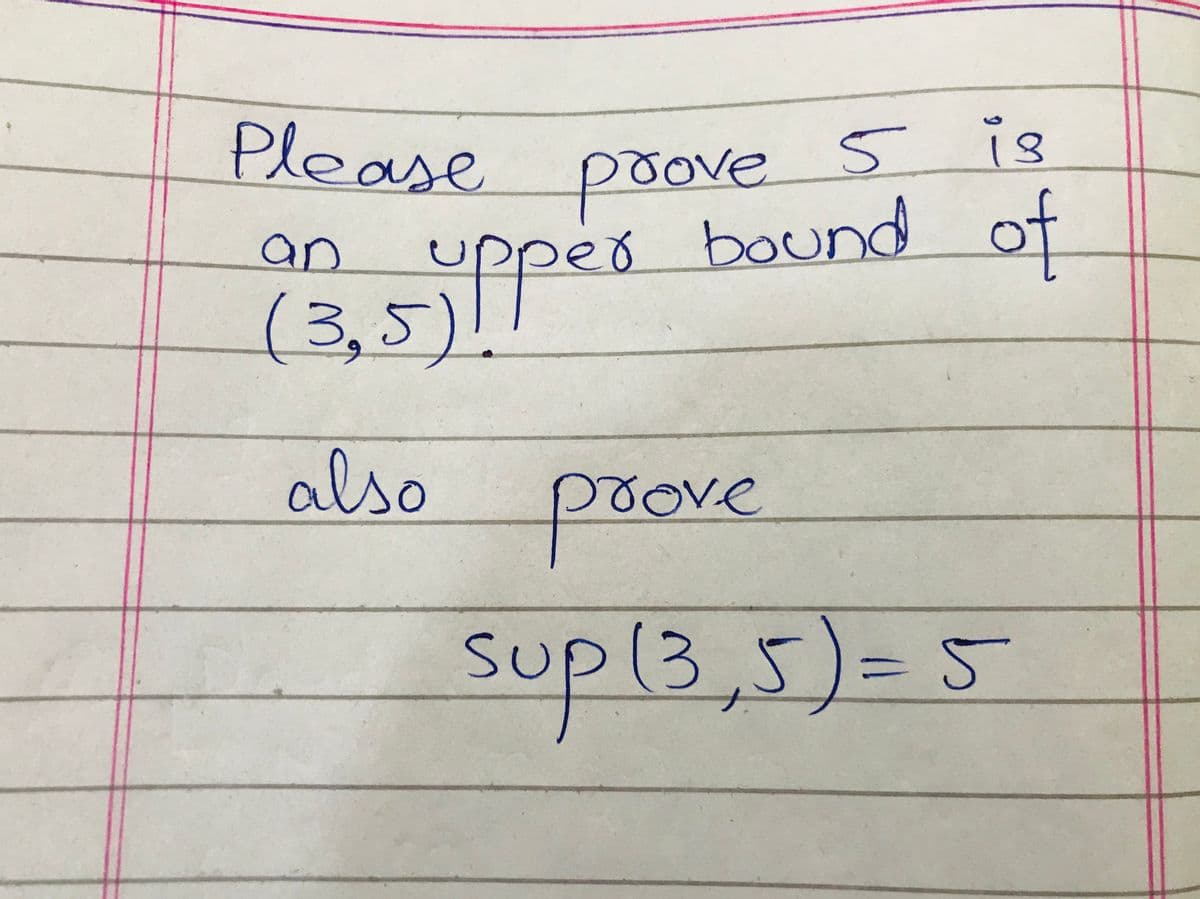 Please prove 5 is
an upper bound of
(3,5).
also prove
sup(3,5)=5